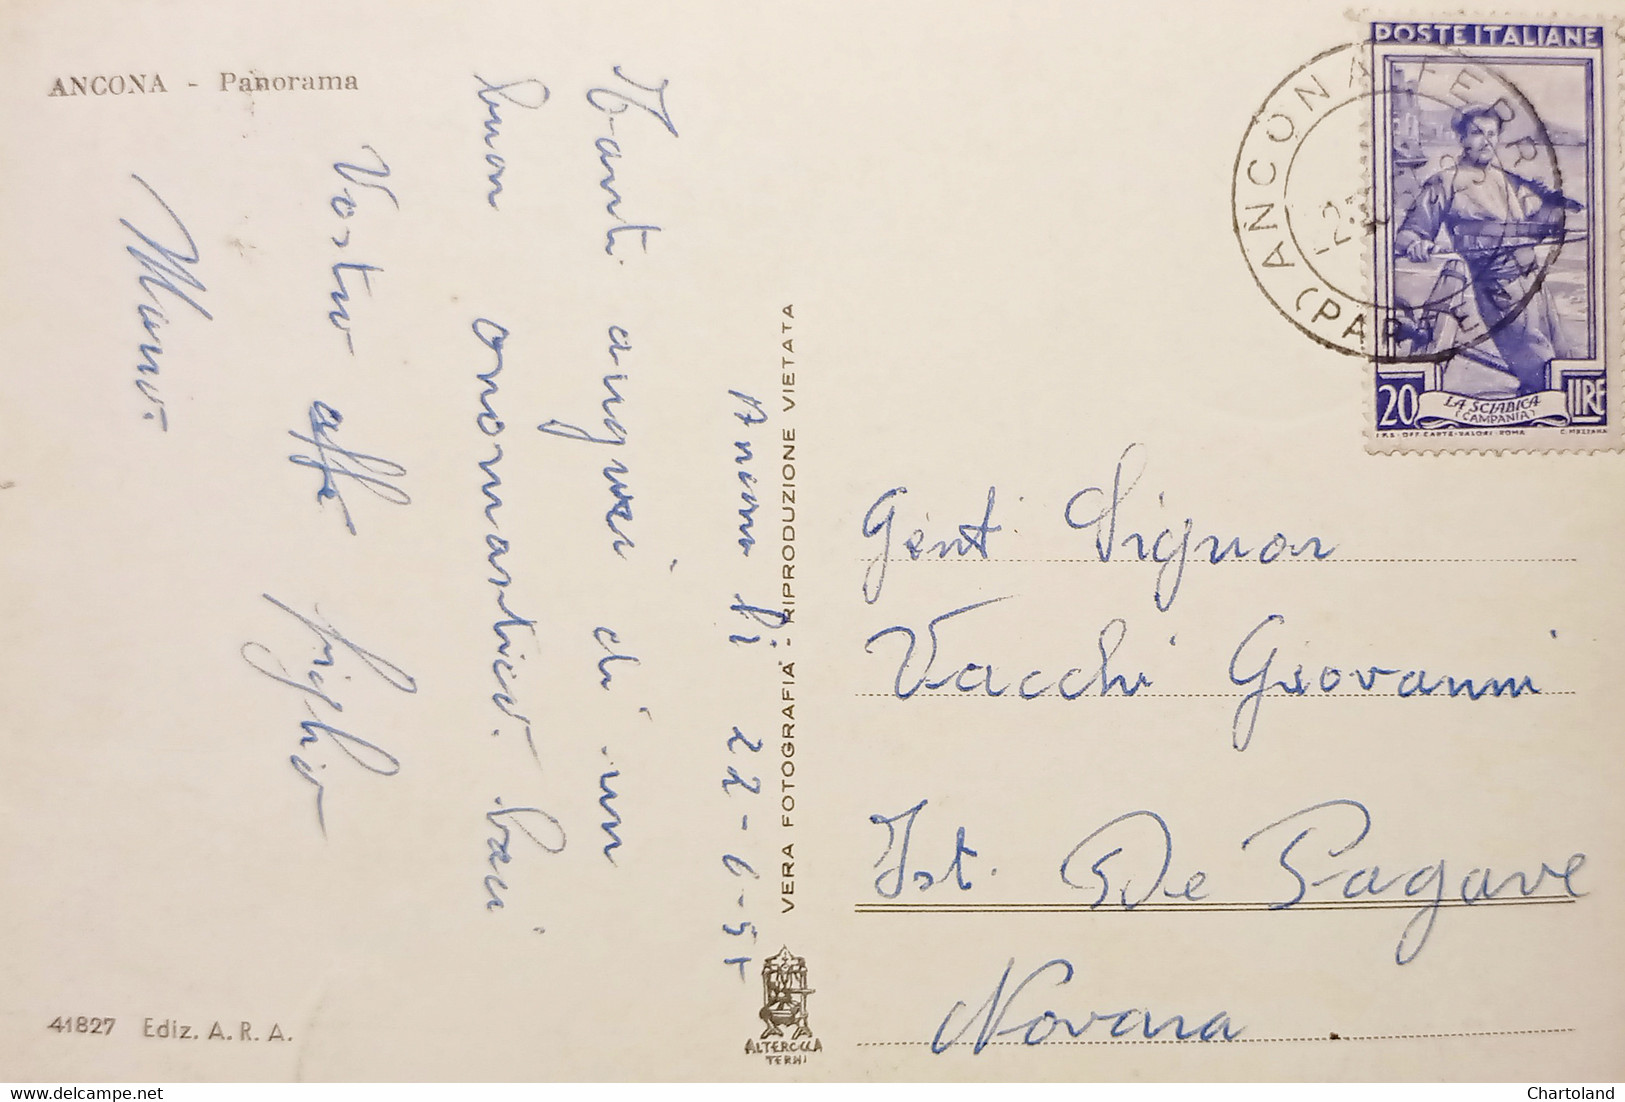 ANCONA - Panorama
Ancona li 22-6-5
Tanti auguri di un
buon onomastico. baci
Vostro aff. figlio
Mario.
VERA FOTOGRAFIA - RIPRODUZIONE VIETATA
41827 Ediz. A. R. A.
ALTEROCCA
TERNI
POSTE ITALIANE
20 LIRE
LA SCIABICA
(CAMPANIA)
I.P.S. OFF. CARTE-VALORI-ROMA C. MEZZANA
ANCONA FERR
(PARTENZA)
Gent. Signor
Vacchi Giovanni
Ist. De Pagave
Novara
Chartoland